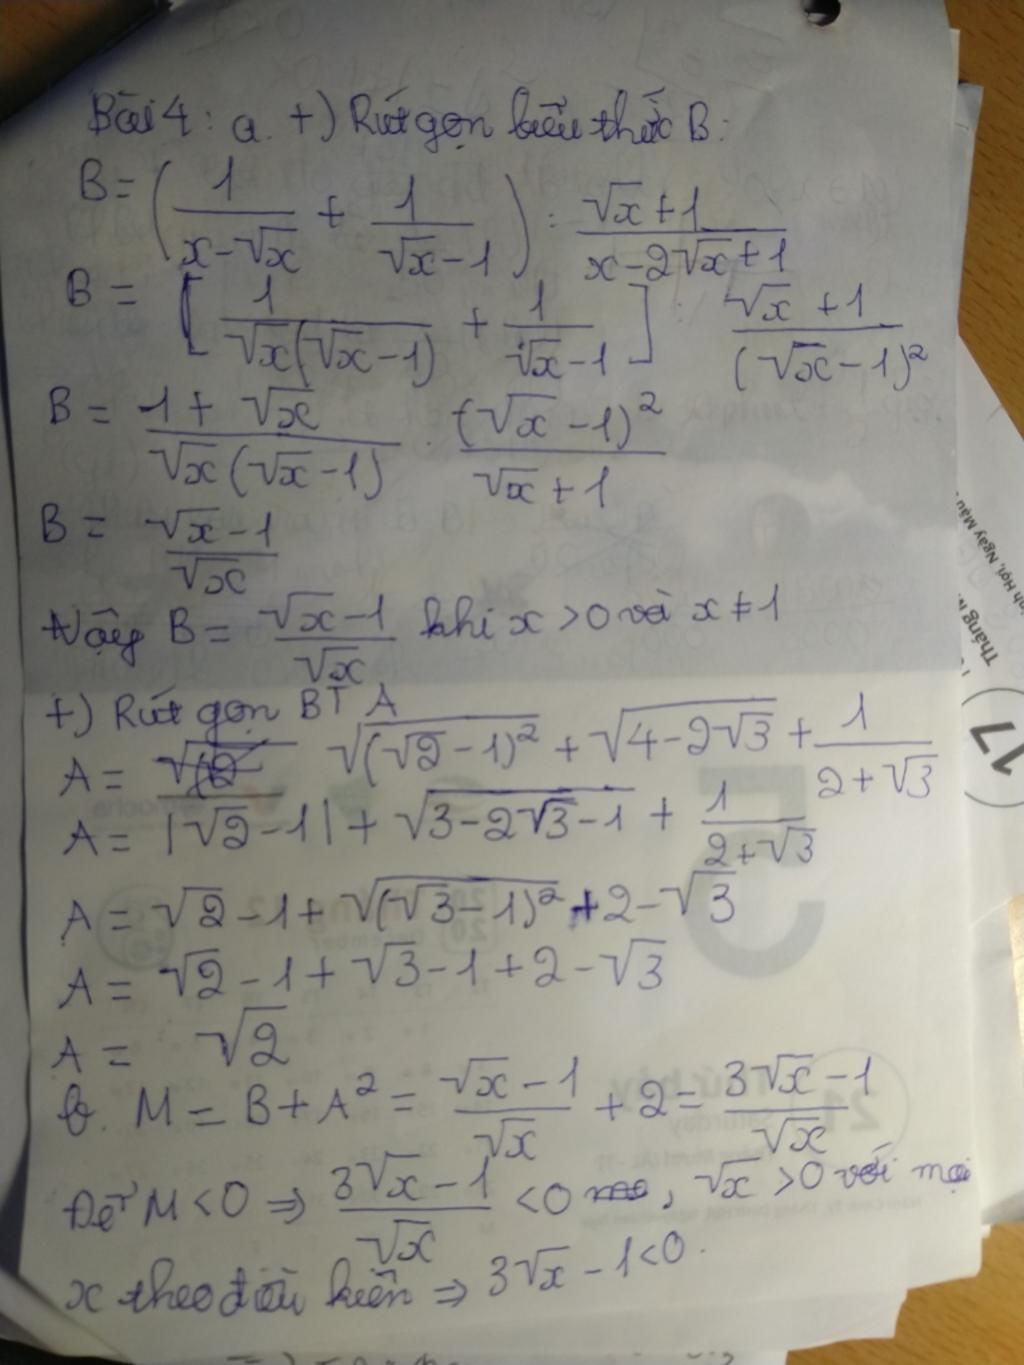 Bài 4: a. +) Rút gọn biểu thức B:
B = (1/(x-√x) + 1/(√x-1)) : (√x+1)/(x-2√x+1)
B = [1/(√x(√x-1)) + 1/(√x-1)] : (√x+1)/(√x-1)²
B = (1+√x)/(√x(√x-1)) . (√x-1)²/(√x+1)
B = (√x-1)/√x
Vậy B = (√x-1)/√x khi x >0 và x ≠ 1
+) Rút gọn BT A
A = √((√2-1)²) + √(4-2√3) + 1/(2+√3)
A = |√2-1| + √(3-2√3-1) + 1/(2+√3)
A = √2-1+√((√3-1)²)+2-√3
A = √2-1+√3-1+2-√3
A = √2
b. M = B+A² = (√x-1)/√x + 2 = (3√x-1)/√x
Để M <0 ⇒ (3√x-1)/√x <0, √x >0 với mọi
x theo điều kiện ⇒ 3√x-1<0.
Tháng
17